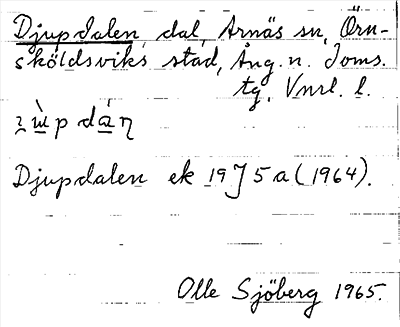 Djupdalen dal, Arnäs sn, Örn-
sköldsviks stad, Ång. n. Doms.
tg, Vnrl. l.
Djupdalen ek 19J5a (1964).
Olle Sjöberg 1965.